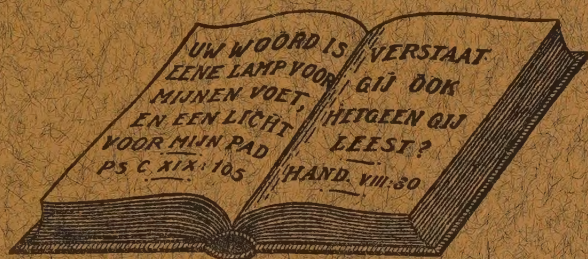 UW WOORD IS
EENE LAMP VOOR
MIJNEN VOET,
EN EEN LICHT
VOOR MIJN PAD
PS. C. XIX: 105
VERSTAAT
GIJ OOK
HETGEEN GIJ
LEEST?
HAND. VIII:30